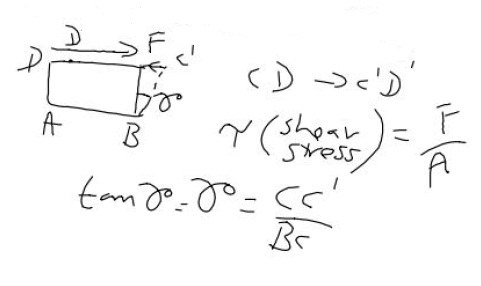 D F
D C'
A B γ°
CD → C'D'
τ (shear stress) = F/A
tan γ° = γ° = CC'/BC